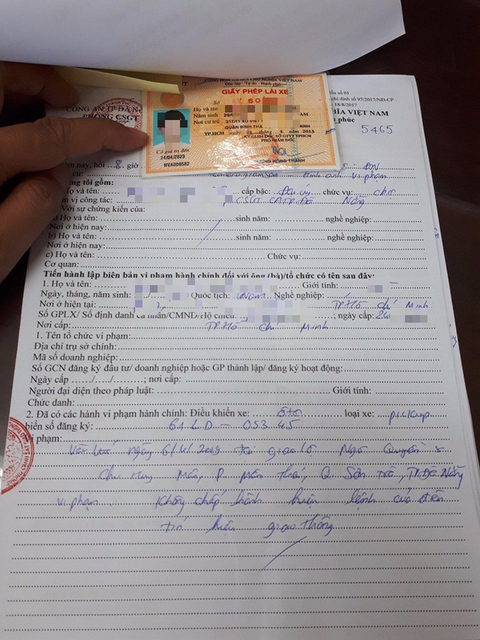 GIẤY PHÉP LÁI XE
Họ và tên
Năm sinh
Nơi cư trú
QUẬN BÌNH THẠ
TP.HCM
2015
PHÓ GIÁM ĐỐC
Có giá trị đến
24/04/2025
CÔNG AN TP ĐÀ N
PHÒNG CSGT
 số 03
định số 97/2017/NĐ-CP
18/8/2017
HĨA VIỆT NAM
phúc
5465
hồi 8 giờ ĐN
vi phạm
tôi gồm:
Họ và tên: cấp bậc: Đại úy chức vụ:
vị công tác: PCSGT CATP Đà Nẵng
Với sự chứng kiến của:
a) Họ và tên: sinh năm: nghề nghiệp:
Nơi ở hiện nay:
b) Họ và tên: sinh năm: nghề nghiệp:
Nơi ở hiện nay:
c) Họ và tên: Chức vụ:
Cơ quan:
Tiến hành lập biên bản vi phạm hành chính đối với ông (bà)/tổ chức có tên sau đây:
1. Họ và tên: Giới tính:
Ngày, tháng, năm sinh: Quốc tịch: Nghề nghiệp:
Nơi ở hiện tại: TP Hồ Chí Minh
Số GPLX/ Số định danh cá nhân/CMND/Hộ chiếu: ; ngày cấp:
Nơi cấp: TP Hồ Chí Minh
1. Tên tổ chức vi phạm:
Địa chỉ trụ sở chính:
Mã số doanh nghiệp:
Số GCN đăng ký đầu tư/ doanh nghiệp hoặc GP thành lập/ đăng ký hoạt động:
Ngày cấp ..../...../......; nơi cấp:
Người đại diện theo pháp luật: Giới tính:
Chức danh:
2. Đã có các hành vi phạm hành chính: Điều khiển xe: ôtô loại xe: pickup
biển số đăng ký: 61 LD - 053.45
vi phạm:
Vào lúc ngày tại giao lộ Ngô Quyền -
Chu Huy Mân, P. Mân Thái, Q. Sơn Trà, TP Đà Nẵng
vi phạm: Không chấp hành hiệu lệnh của đèn
tín hiệu giao thông